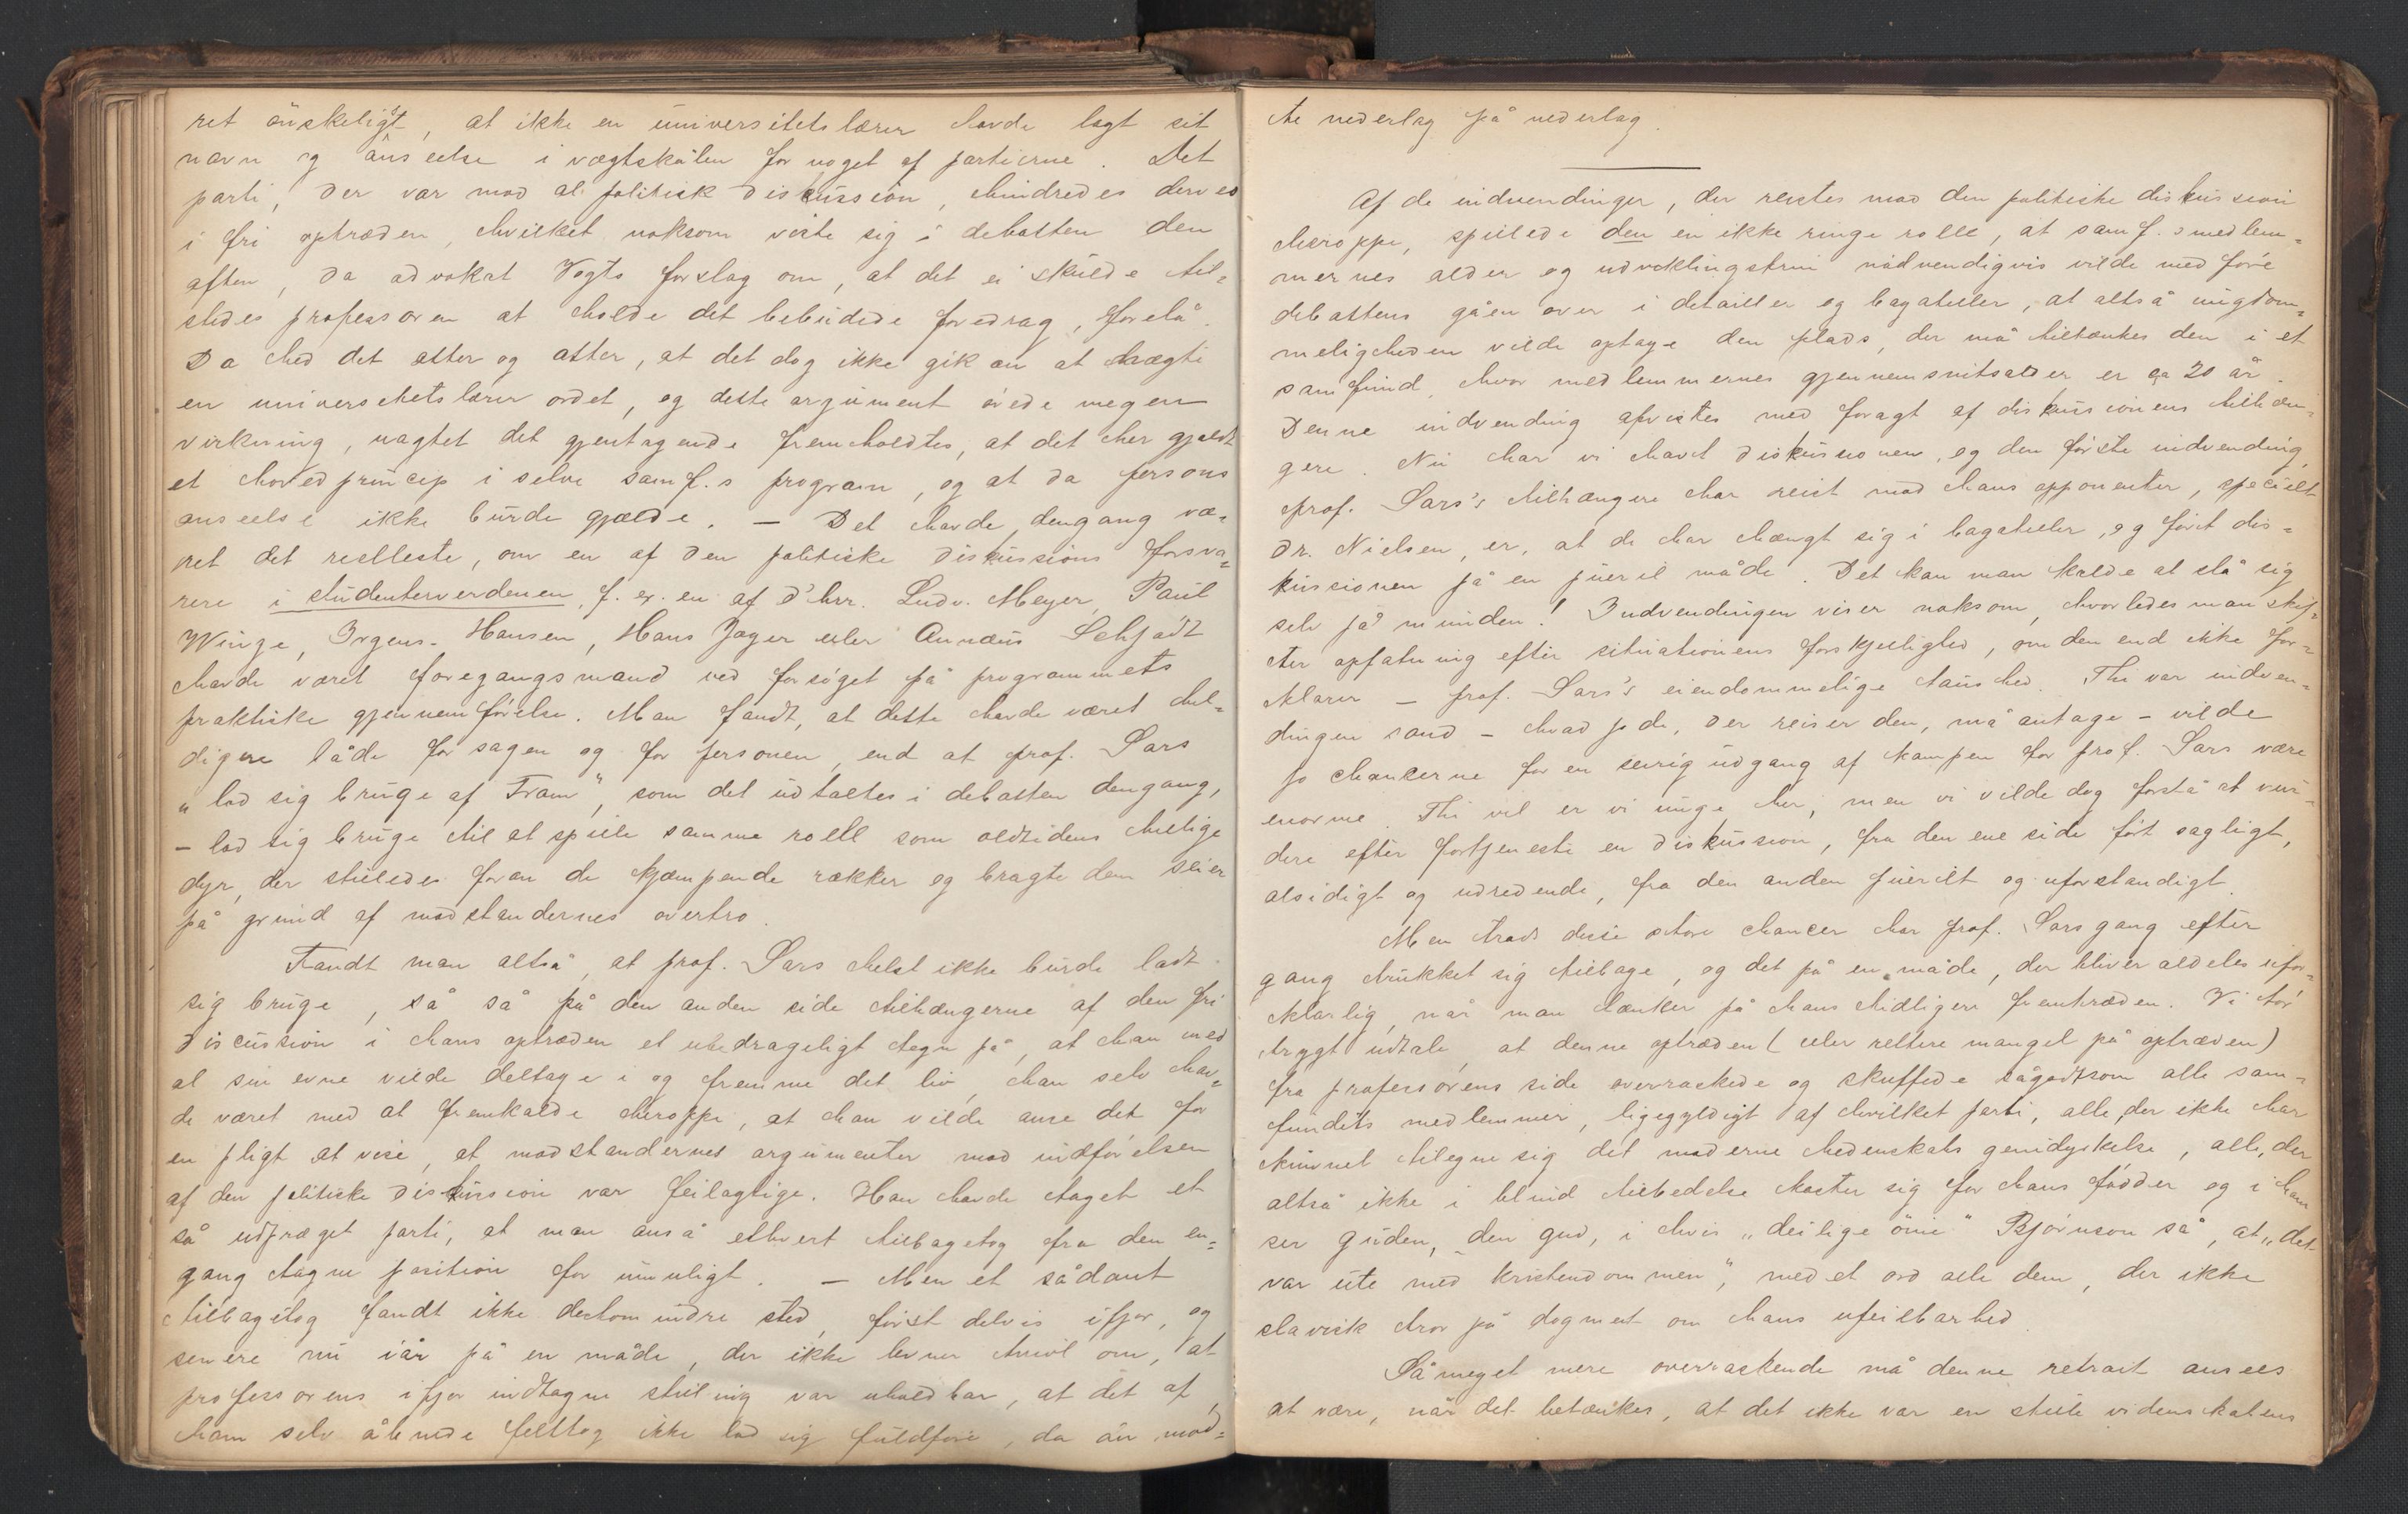 ret ønskeligt, at ikke en universitetslærer havde lagt sit
navn og anseelse i vægtskålen for noget af partierne. Det
parti, der var mod al politisk diskussion, hindredes derved
i fri optræden, hvilket noksom viste sig i debatten den
aften, da advokat Vogts forslag om, at det ei skulde til=
stedes professoren at holde det bebudede foredrag, forelå.
Da hed det atter og atter, at det dog ikke gik an at nægte
en universitetslærer ordet, og dette argument øvede megen
virkning, uagtet det gjentagende fremholdtes, at det her gjaldt
et hovedprincip i selve samf.s program, og at da persons
anseelse ikke burde gjælde. — Det havde dengang væ=
ret det reelleste, om en af den politiske diskussions forsva=
rere i studenterverdenen, f. ex. en af d'hrr. Ludv. Meyer, Paul
Winge, Irgens-Hansen, Hans Jæger eller Annæus Schjødt
havde været foregangsmand ved forsøget på programmets
praktiske gjennemførelse. Man fandt, at dette havde været hel=
digere både for sagen og for personen, end at prof. Sars
„lod sig bruge af Fram", som det udtaltes i debatten dengang,
— lod sig bruge til at spille samme rolle som oldtidens hellige
dyr, der stilledes foran de kjæmpende rækker og bragte dem seier
på grund af modstandernes overtro.
Fandt man altså, at prof. Sars helst ikke burde ladt
sig bruge, så så på den anden side tilhængerne af den fri
discussion i hans optræden et ubedrageligt tegn på, at han med
al sin evne vilde deltage i og fremme det liv, han selv hav=
de været med at fremkalde heroppe, at han vilde anse det for
en pligt at vise, at modstandernes argumenter mod indførelsen
af den politiske diskussion var feilagtige. Han havde taget et
så udpræget parti, at man anså ethvert tilbagetog fra den en=
gang tagne position for umuligt. — Men et sådant
tilbagetog fandt ikke destomindre sted, først delvis ifjor, og
senere nu iår på en måde, der ikke levner tvivl om, at
professorens ifjor indtagne stilling var uholdbar, at det af
ham selv åbnede felttog ikke lod sig fuldføre, da än mød=
te nederlag på nederlag.
Af de indvendinger, der reistes mod den politiske diskussion
heroppe, spillede den en ikke ringe rolle, at samf.s medlem=
mernes alder og udviklingstrin nødvendigvis vilde medføre
debattens gåen over i detailler og bagateller, at altså ungdom=
meligheden vilde optage den plads, der må tiltænkes den i et
samfund, hvor medlemmernes gjennemsnitsalder er ca 20 år.
Denne indvending afvistes med foragt af diskussionens tilhæn=
gere. Nu har vi havt diskussionen, og den første indvending,
prof. Sars's tilhængere har reist mod hans opponenter, specielt
dr. Nielsen, er, at de har hængt sig i bagateller, og ført dis=
kussionen på en pueril måde. Det kan man kalde at slå sig
selv på munden! Indvendingen viser noksom, hvorledes man skif=
ter opfatning efter situationens forskjellighed, om den end ikke for=
klarer — prof. Sars's eiendommelige taushed. Thi var indven=
dingen sand — hvad jo de, der reiser den, må antage — vilde
jo chancerne for en seirrig udgang af kampen for prof. Sars være
enorme. Thi vel er vi unge her, men vi vilde dog forstå at vur=
dere efter fortjeneste en diskussion, fra den ene side ført sagligt,
alsidigt og udredende, fra den anden puerilt og uforstandigt.
Men trods disse store chancer har prof. Sars gang efter
gang trukket sig tilbage, og det på en måde, der bliver aldeles ufor=
klarlig, når man tænker på hans tidligere fremtræden. Vi tør
trygt udtale, at denne optræden (eller rettere mangel på optræden)
fra professorens side overraskede og skuffede sågodtsom alle sam=
fundets medlemmer, ligegyldigt af hvilket parti, alle, der ikke har
kunnet tilegne sig det moderne hedenskabs genidyrkelse, alle, der
altså ikke i blind tilbedelse kaster sig for hans fødder og i ham
ser guden, den gud, i hvis „deilige öine" Bjørnson så, at „det
var ute med kristendommen", med et ord alle dem, der ikke
slavisk tror på dogmet om hans ufeilbarhed.
Såmeget mere overraskende må denne retrait ansees
at være, når det betænkes, at det ikke var en stille videnskabens